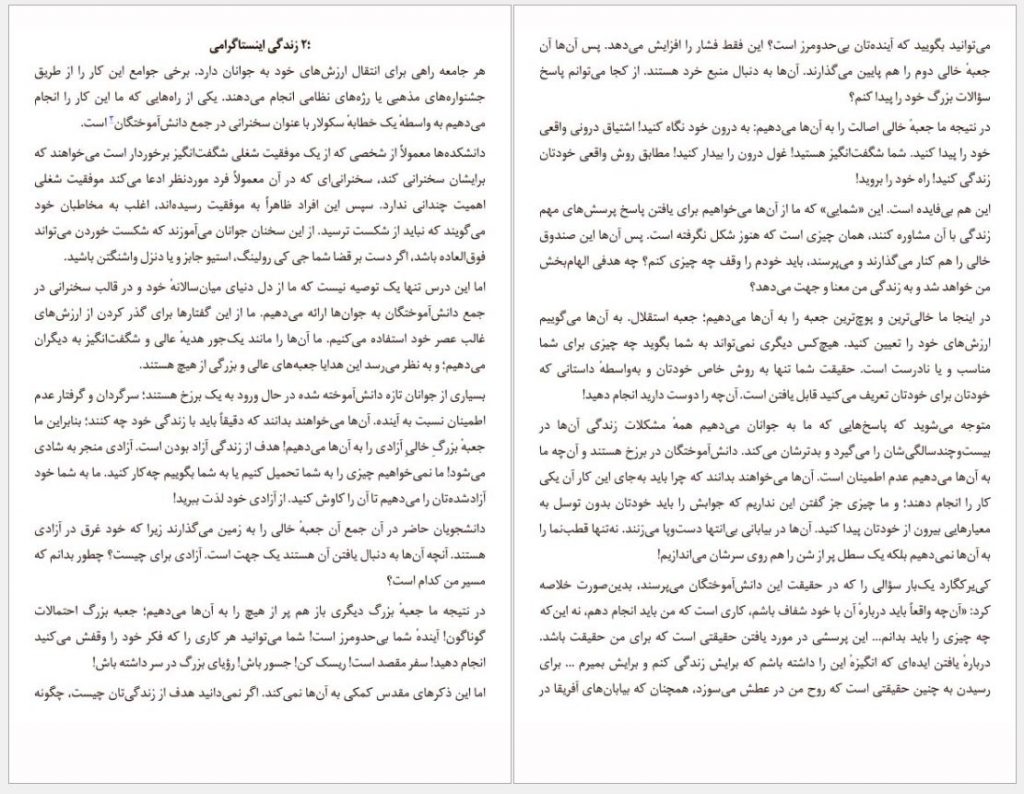 ۲؛ زندگی اینستاگرامی
هر جامعه راهی برای انتقال ارزش‌های خود به جوانان دارد. برخی جوامع این کار را از طریق
جشنواره‌های مذهبی یا رژه‌های نظامی انجام می‌دهند. یکی از راه‌هایی که ما این کار را انجام
می‌دهیم به واسطهٔ یک خطابهٔ سکولار با عنوان سخنرانی در جمع دانش‌آموختگان است.
دانشکده‌ها معمولاً از شخصی که از یک موفقیت شغلی شگفت‌انگیز برخوردار است می‌خواهند که
برایشان سخنرانی کند، سخنرانی‌ای که در آن معمولاً فرد موردنظر ادعا می‌کند موفقیت شغلی
اهمیت چندانی ندارد. سپس این افراد ظاهراً به موفقیت رسیده‌اند، اغلب به مخاطبان خود
می‌گویند که نباید از شکست ترسید. از این سخنان جوانان می‌آموزند که شکست خوردن می‌تواند
فوق‌العاده باشد، اگر دست بر قضا شما جی کی رولینگ، استیو جابز و یا دنزل واشنگتن باشید.
اما این درس تنها یک توصیه نیست که ما از دل دنیای میان‌سالانهٔ خود و در قالب سخنرانی در
جمع دانش‌آموختگان به جوان‌ها ارائه می‌دهیم. ما از این گفتارها برای گذر کردن از ارزش‌های
غالب عصر خود استفاده می‌کنیم. ما آن‌ها را مانند یک‌جور هدیهٔ عالی و شگفت‌انگیز به دیگران
می‌دهیم؛ و به نظر می‌رسد این هدایا جعبه‌های عالی و بزرگی از هیچ هستند.
بسیاری از جوانان تازه دانش‌آموخته شده در حال ورود به یک برزخ هستند؛ سرگردان و گرفتار عدم
اطمینان نسبت به آینده. آن‌ها می‌خواهند بدانند که دقیقاً باید با زندگی خود چه کنند؛ بنابراین ما
جعبهٔ بزرگِ خالیِ آزادی را به آن‌ها می‌دهیم! هدف از زندگی آزاد بودن است. آزادی منجر به شادی
می‌شود! ما نمی‌خواهیم چیزی را به شما تحمیل کنیم یا به شما بگوییم چه‌کار کنید. ما به شما خود
آزادشده‌تان را می‌دهیم تا آن را کاوش کنید. از آزادی خود لذت ببرید!
دانشجویان حاضر در آن جمع آن جعبهٔ خالی را به زمین می‌گذارند زیرا که خود غرق در آزادی
هستند. آنچه آن‌ها به دنبال یافتن آن هستند یک جهت است. آزادی برای چیست؟ چطور بدانم که
مسیر من کدام است؟
در نتیجه ما جعبهٔ بزرگ دیگری باز هم پر از هیچ را به آن‌ها می‌دهیم؛ جعبه بزرگ احتمالات
گوناگون! آیندهٔ شما بی‌حدومرز است! شما می‌توانید هر کاری را که فکر خود را وقفش می‌کنید
انجام دهید! سفر مقصد است! ریسک کن! جسور باش! رؤیای بزرگ در سر داشته باش!
اما این ذکرهای مقدس کمکی به آن‌ها نمی‌کند. اگر نمی‌دانید هدف از زندگی‌تان چیست، چگونه
می‌توانید بگویید که آینده‌تان بی‌حدومرز است؟ این فقط فشار را افزایش می‌دهد. پس آن‌ها آن
جعبهٔ خالی دوم را هم پایین می‌گذارند. آن‌ها به دنبال منبع خرد هستند. از کجا می‌توانم پاسخ
سؤالات بزرگ خود را پیدا کنم؟
در نتیجه ما جعبهٔ خالی اصالت را به آن‌ها می‌دهیم: به درون خود نگاه کنید! اشتیاق درونی واقعی
خود را پیدا کنید. شما شگفت‌انگیز هستید! غول درون را بیدار کنید! مطابق روش واقعی خودتان
زندگی کنید! راه خود را بروید!
این هم بی‌فایده است. این «شمایی» که ما از آن‌ها می‌خواهیم برای یافتن پاسخ پرسش‌های مهم
زندگی با آن مشاوره کنند، همان چیزی است که هنوز شکل نگرفته است. پس آن‌ها این صندوق
خالی را هم کنار می‌گذارند و می‌پرسند، باید خودم را وقف چه چیزی کنم؟ چه هدفی الهام‌بخش
من خواهد شد و به زندگی من معنا و جهت می‌دهد؟
در اینجا ما خالی‌ترین و پوچ‌ترین جعبه را به آن‌ها می‌دهیم؛ جعبه استقلال. به آن‌ها می‌گوییم
ارزش‌های خود را تعیین کنید. هیچ‌کس دیگری نمی‌تواند به شما بگوید چه چیزی برای شما
مناسب و یا نادرست است. حقیقت شما تنها به روش خاص خودتان و به‌واسطهٔ داستانی که
خودتان برای خودتان تعریف می‌کنید قابل یافتن است. آن‌چه را دوست دارید انجام دهید!
متوجه می‌شوید که پاسخ‌هایی که ما به جوانان می‌دهیم همهٔ مشکلات زندگی آن‌ها در
بیست‌وچندسالگی‌شان را می‌گیرد و بدترشان می‌کند. دانش‌آموختگان در برزخ هستند و آن‌چه ما
به آن‌ها می‌دهیم عدم اطمینان است. آن‌ها می‌خواهند بدانند که چرا باید به‌جای این کار آن یکی
کار را انجام دهند؛ و ما چیزی جز گفتن این نداریم که جوابش را باید خودتان بدون توسل به
معیارهایی بیرون از خودتان پیدا کنید. آن‌ها در بیابانی بی‌انتها دست‌وپا می‌زنند. نه‌تنها قطب‌نما را
به آن‌ها نمی‌دهیم بلکه یک سطل پر از شن را هم روی سرشان می‌اندازیم!
کی‌یرکگارد یک‌بار سؤالی را که در حقیقت این دانش‌آموختگان می‌پرسند، بدین‌صورت خلاصه
کرد: «آن‌چه واقعاً باید دربارهٔ آن با خود شفاف باشم، کاری است که من باید انجام دهم، نه این‌که
چه چیزی را باید بدانم... این پرسشی در مورد یافتن حقیقتی است که برای من حقیقت باشد.
دربارهٔ یافتن ایده‌ای که انگیزهٔ این را داشته باشم که برایش زندگی کنم و برایش بمیرم ... برای
رسیدن به چنین حقیقتی است که روح من در عطش می‌سوزد، همچنان که بیابان‌های آفریقا در